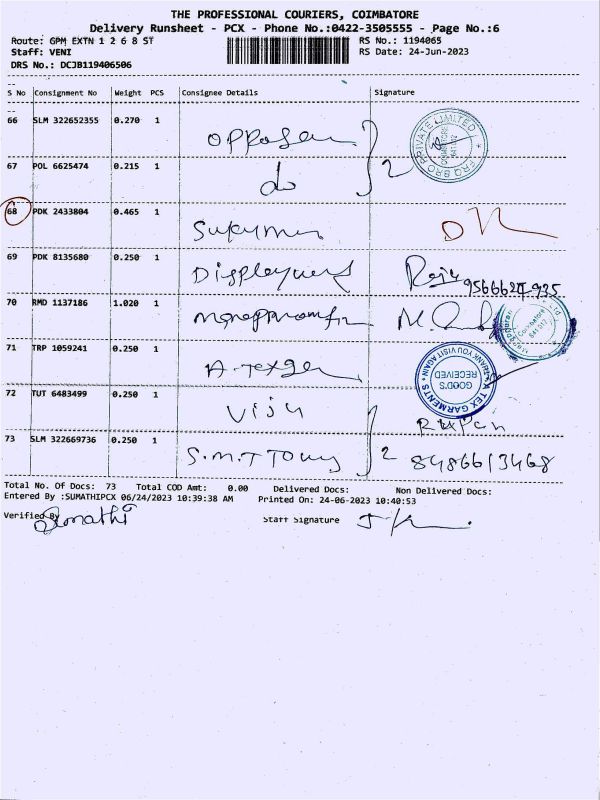 THE PROFESSIONAL COURIERS, COIMBATORE
Delivery Runsheet - PCX - Phone No.:0422-3505555 - Page No.:6
Route: GPM EXTN 1 2 6 8 ST RS No.: 1194065
Staff: VENI RS Date: 24-Jun-2023
DRS No.: DCJB119406506
S No Consignment No Weight PCS Consignee Details Signature
66 SLM 322652355 0.270 1
67 POL 6625474 0.215 1 do 2
68 PDK 2433804 0.465 1
69 PDK 8135680 0.250 1 Raju
70 RMD 1137186 1.020 1
71 TRP 1059241 0.250 1 A-Texger
GOOD'S RECEIVED
THANK YOU VISIT AGAIN
A TEX GARMENTS
72 TUT 6483499 0.250 1 Viju
73 SLM 322669736 0.250 1 2 8486613468
Total No. Of Docs: 73 Total COD Amt: 0.00 Delivered Docs: Non Delivered Docs:
Entered By :SUMATHIPCX 06/24/2023 10:39:38 AM Printed On: 24-06-2023 10:40:53
Verified By Sumathi Staff Signature